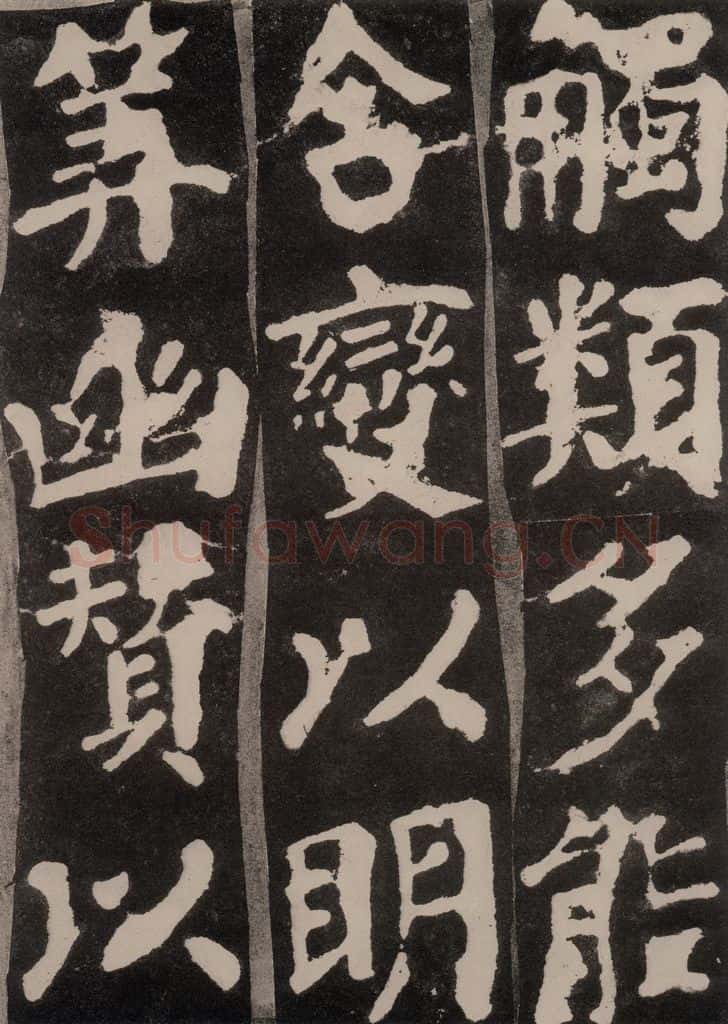 觸類多能
合變以明
筭幽贊以
Shufawang.CN